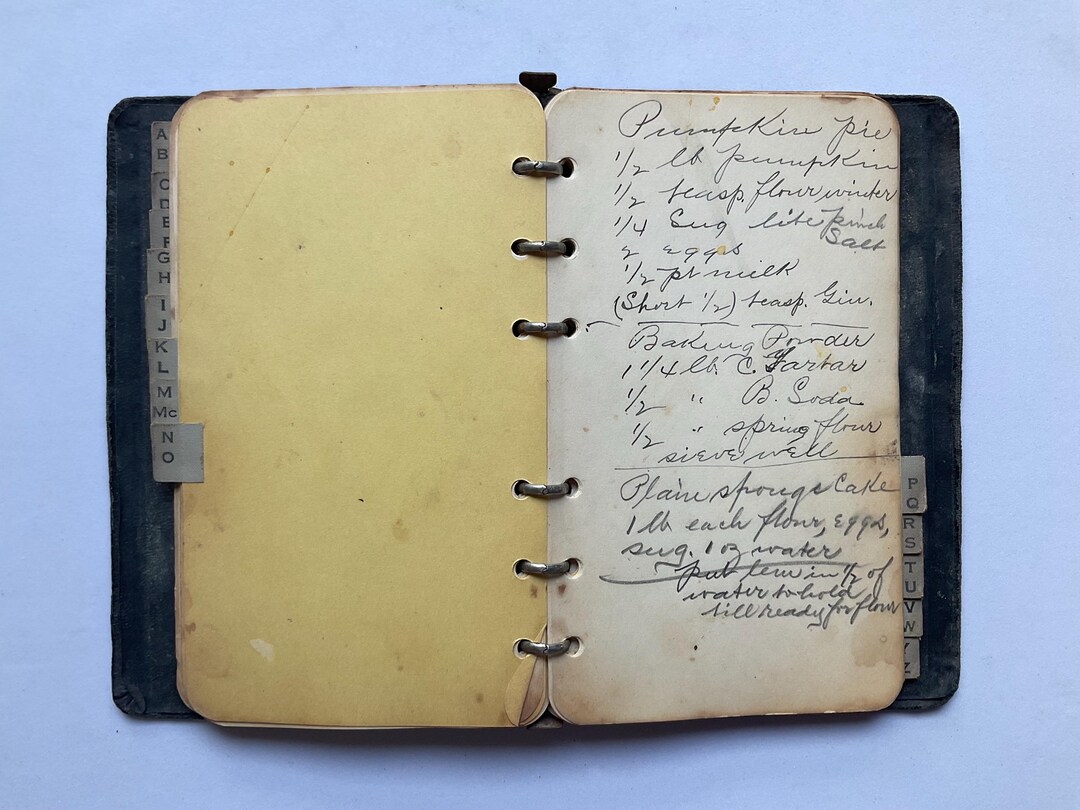 A
B
C
D
E
F
G
H
I
J
K
L
M
Mc
N
O
Pumpkin pie
1/2 lb pumpkin
1/2 teasp. flour winter
1/4 Sug lite pinch
Salt
2 eggs
1/2 pt milk
(Short 1/2) teasp. Gin.
Baking Powder
1 1/4 lb. C. Tartar
1/2 " B. Soda
1/2 " spring flour
sieve well
Plain sponge Cake
1 lb each flour, eggs,
sug. 1 oz water
put lem in 1/2 of
water to hold
till ready for flour
P
Q
R
S
T
U
V
W
Y
Z